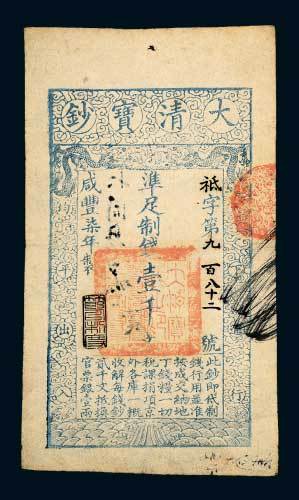 大清寶鈔
祗字第九百八十二號
準足制錢壹千文
咸豐柒年
天下通行
均平出入
此鈔即代制
錢行用並准
按成交納地
丁錢糧一切
稅課捐項京
外各庫一概
收解每錢鈔
貳千文抵換
官票銀壹兩